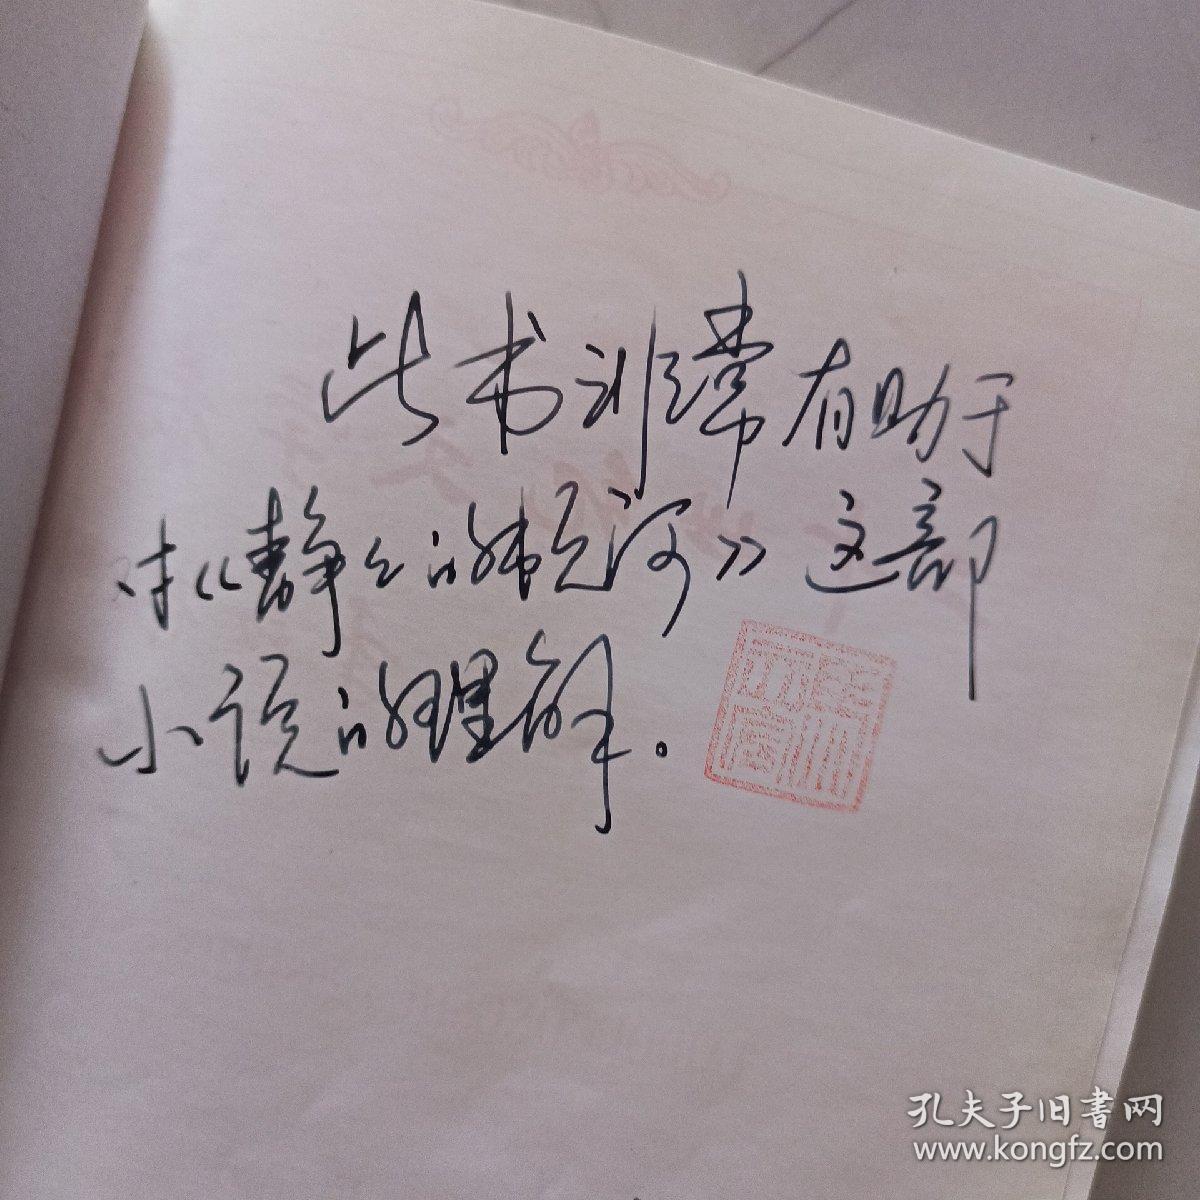 此书非常有助于
对《静静的顿河》这部
小说的理解。
孔夫子旧书网
www.kongfz.com